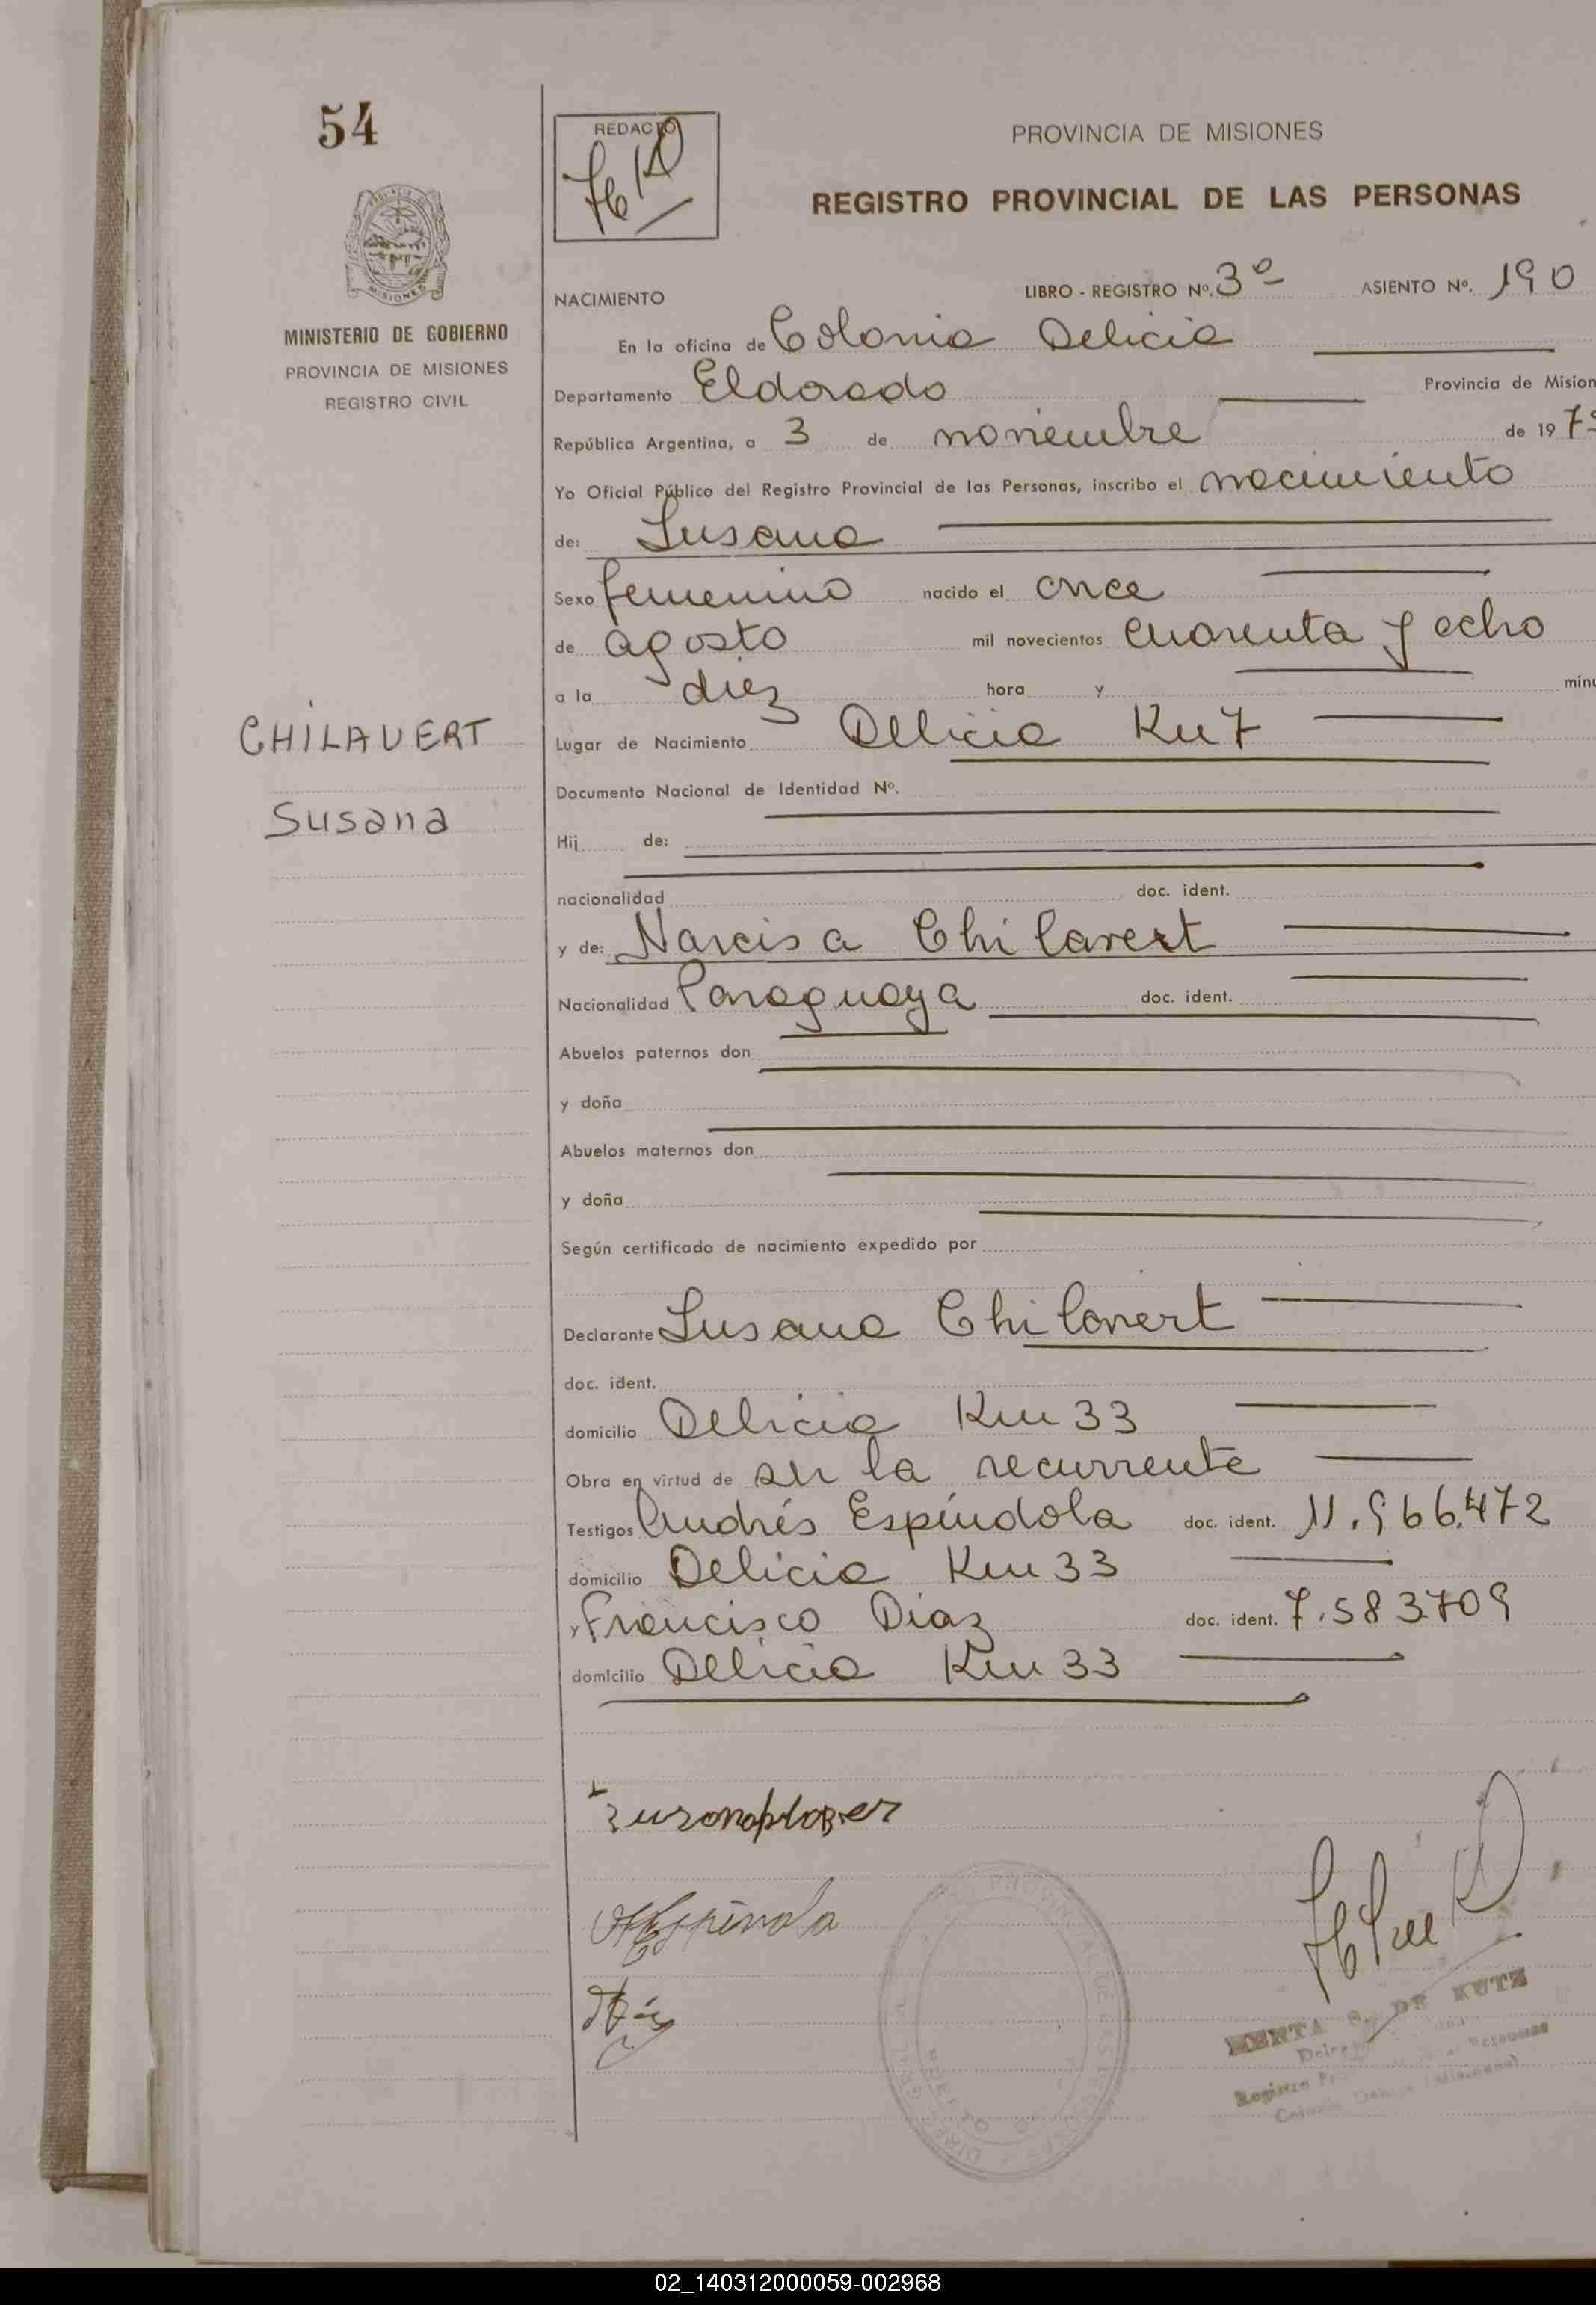 54
REDACTO
PROVINCIA DE MISIONES
REGISTRO PROVINCIAL DE LAS PERSONAS
MISIONES
MINISTERIO DE GOBIERNO
PROVINCIA DE MISIONES
REGISTRO CIVIL
NACIMIENTO LIBRO - REGISTRO Nº. 3º ASIENTO Nº. 190
En la oficina de Colonia Delicia
Departamento Eldorado Provincia de Mision
República Argentina, a 3 de noviembre de 197
Yo Oficial Público del Registro Provincial de las Personas, inscribo el nacimiento
de: Susana
Sexo femenino nacido el once
de agosto mil novecientos cuarenta y ocho
a la diez hora y minu
CHILAVERT
Susana
Lugar de Nacimiento Delicia Km 7
Documento Nacional de Identidad Nº.
Hij de:
nacionalidad doc. ident.
y de: Narcisa Chilavert
Nacionalidad Paraguaya doc. ident.
Abuelos paternos don
y doña
Abuelos maternos don
y doña
Según certificado de nacimiento expedido por
Declarante Susana Chilavert
doc. ident.
domicilio Delicia Km 33
Obra en virtud de ser la recurrente
Testigos Andrés Espíndola doc. ident. 11.966.472
domicilio Delicia Km 33
y Francisco Diaz doc. ident. 7.583.709
domicilio Delicia Km 33
DE KUTZ
02_140312000059-002968